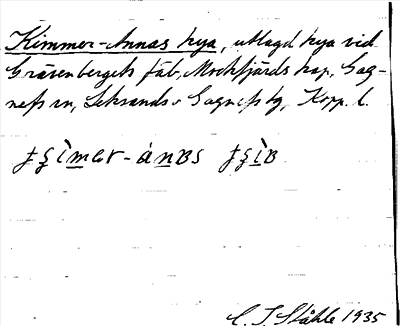 Kimmer-Annas hya, utlagd hya vid
Gråvenbergets fäb, Mockfjärds kap, Gag-
nefs sn, Leksands o Gagnefs tg, Kopp. l.
C. I. Ståhle 1935